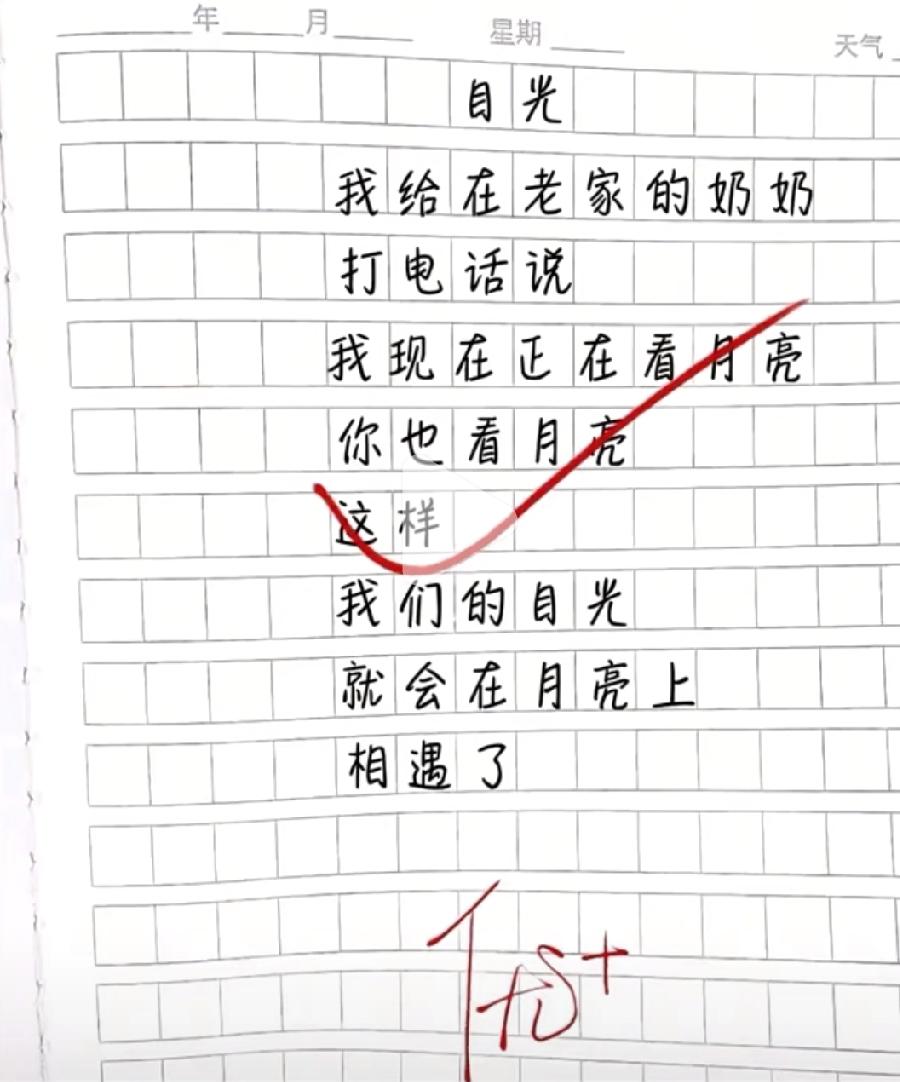 年 月 星期 天气
目光
我给在老家的奶奶
打电话说
我现在正在看月亮
你也看月亮
这样
我们的目光
就会在月亮上
相遇了
优+